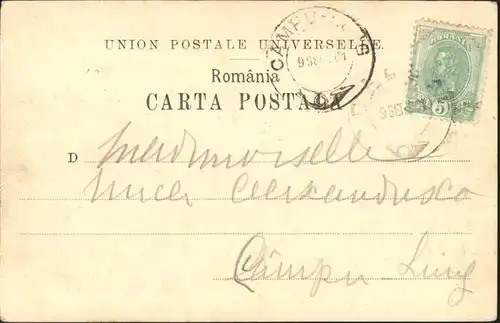 UNION POSTALE UNIVERSELLE.
România
CARTA POSTALA
ROMANIA
5
9 SEP
D Mademoiselle
Alexandresco
Câmpu Lung